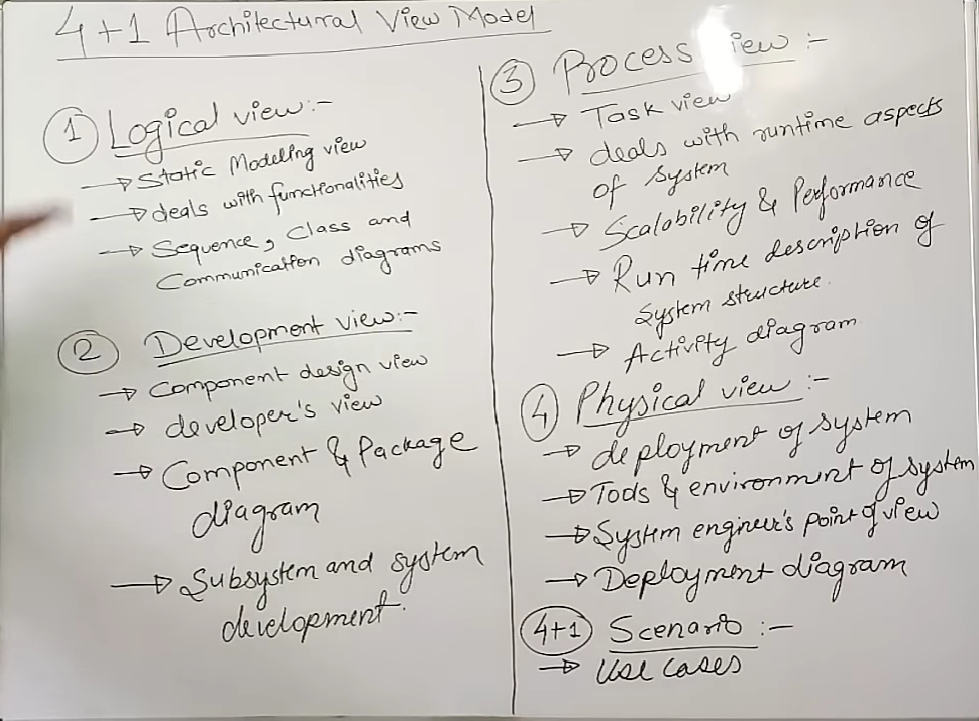 4+1 Architectural View Model
1 Logical view:-
→ Static Modelling view
→ deals with functionalities
→ Sequence, Class and
Communication diagrams
2 Development view:-
→ Component design view
→ developer's view
→ Component & Package
diagram
→ Subsystem and system
development.
3 Process view :-
→ Task view
→ deals with runtime aspects
of system
→ Scalability & Performance
→ Run time description of
System structure.
→ Activity diagram
4 Physical view :-
→ deployment of system
→ Tools & environment of system
→ System engineer's point of view
→ Deployment diagram
4+1 Scenario :-
→ Use cases